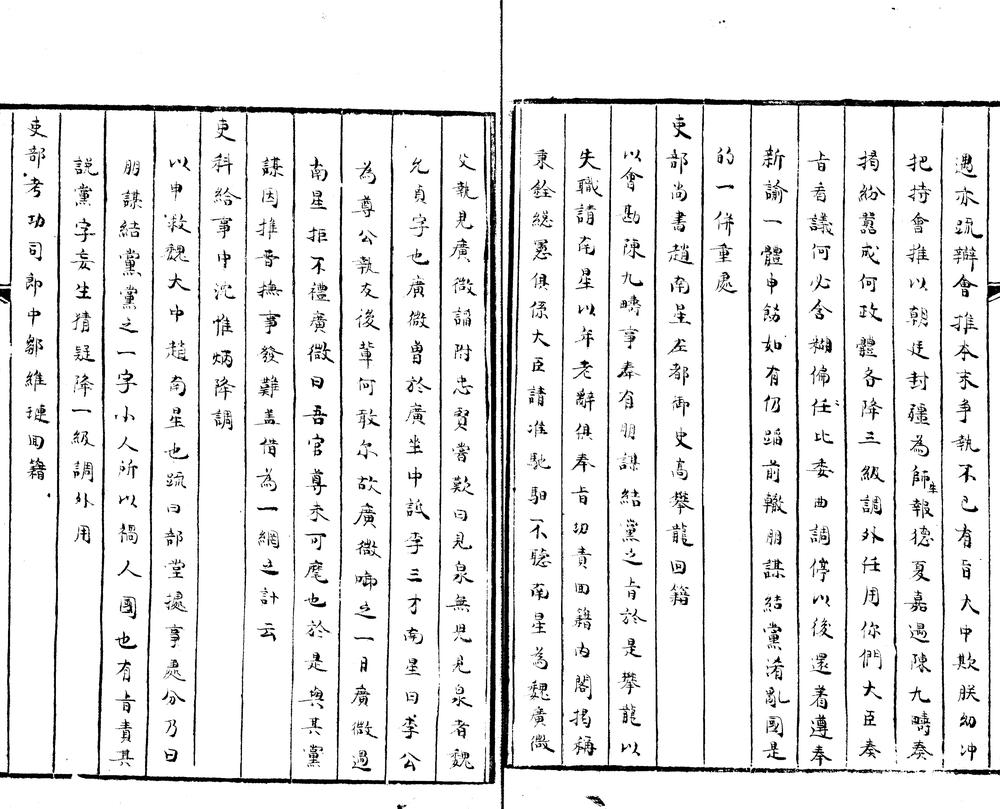 遇亦疏辯會推本末爭執不已有旨大中欺朕幼冲
把持會推以朝廷封疆為師生報德夏嘉遇陳九疇奏
揭紛囂成何政體各降三級調外任用你們大臣奏
旨看議何必含糊偏任比委曲調停以後還着遵奉
新諭一體申飭如有仍蹈前轍朋謀結黨淆亂國是
的一併重處
吏部尚書趙南星左都御史高攀龍回籍
以會勘陳九疇事奉有朋謀結黨之旨於是攀龍以
失職請南星以年老辭俱奉旨切責回籍內閣揭稱
秉銓總憲俱係大臣請准馳驲不聽南星為魏廣微
父執見廣微諂附忠賢嘗歎曰見泉無兒見泉者魏
允貞字也廣微曾於廣坐中詆李三才南星曰李公
為尊公執友後輩何敢尔故廣微啣之一日廣微過
南星拒不禮廣微曰吾官尊未可麾也於是與其黨
謀因推晋撫事發難盖借為一網之計云
吏科給事中沈惟炳降調
以申救魏大中趙南星也疏曰部堂擾事處分乃曰
朋謀結黨黨之一字小人所以禍人國也有旨責其
説黨字妄生猜疑降一級調外用
吏部考功司郎中鄒維璉回籍